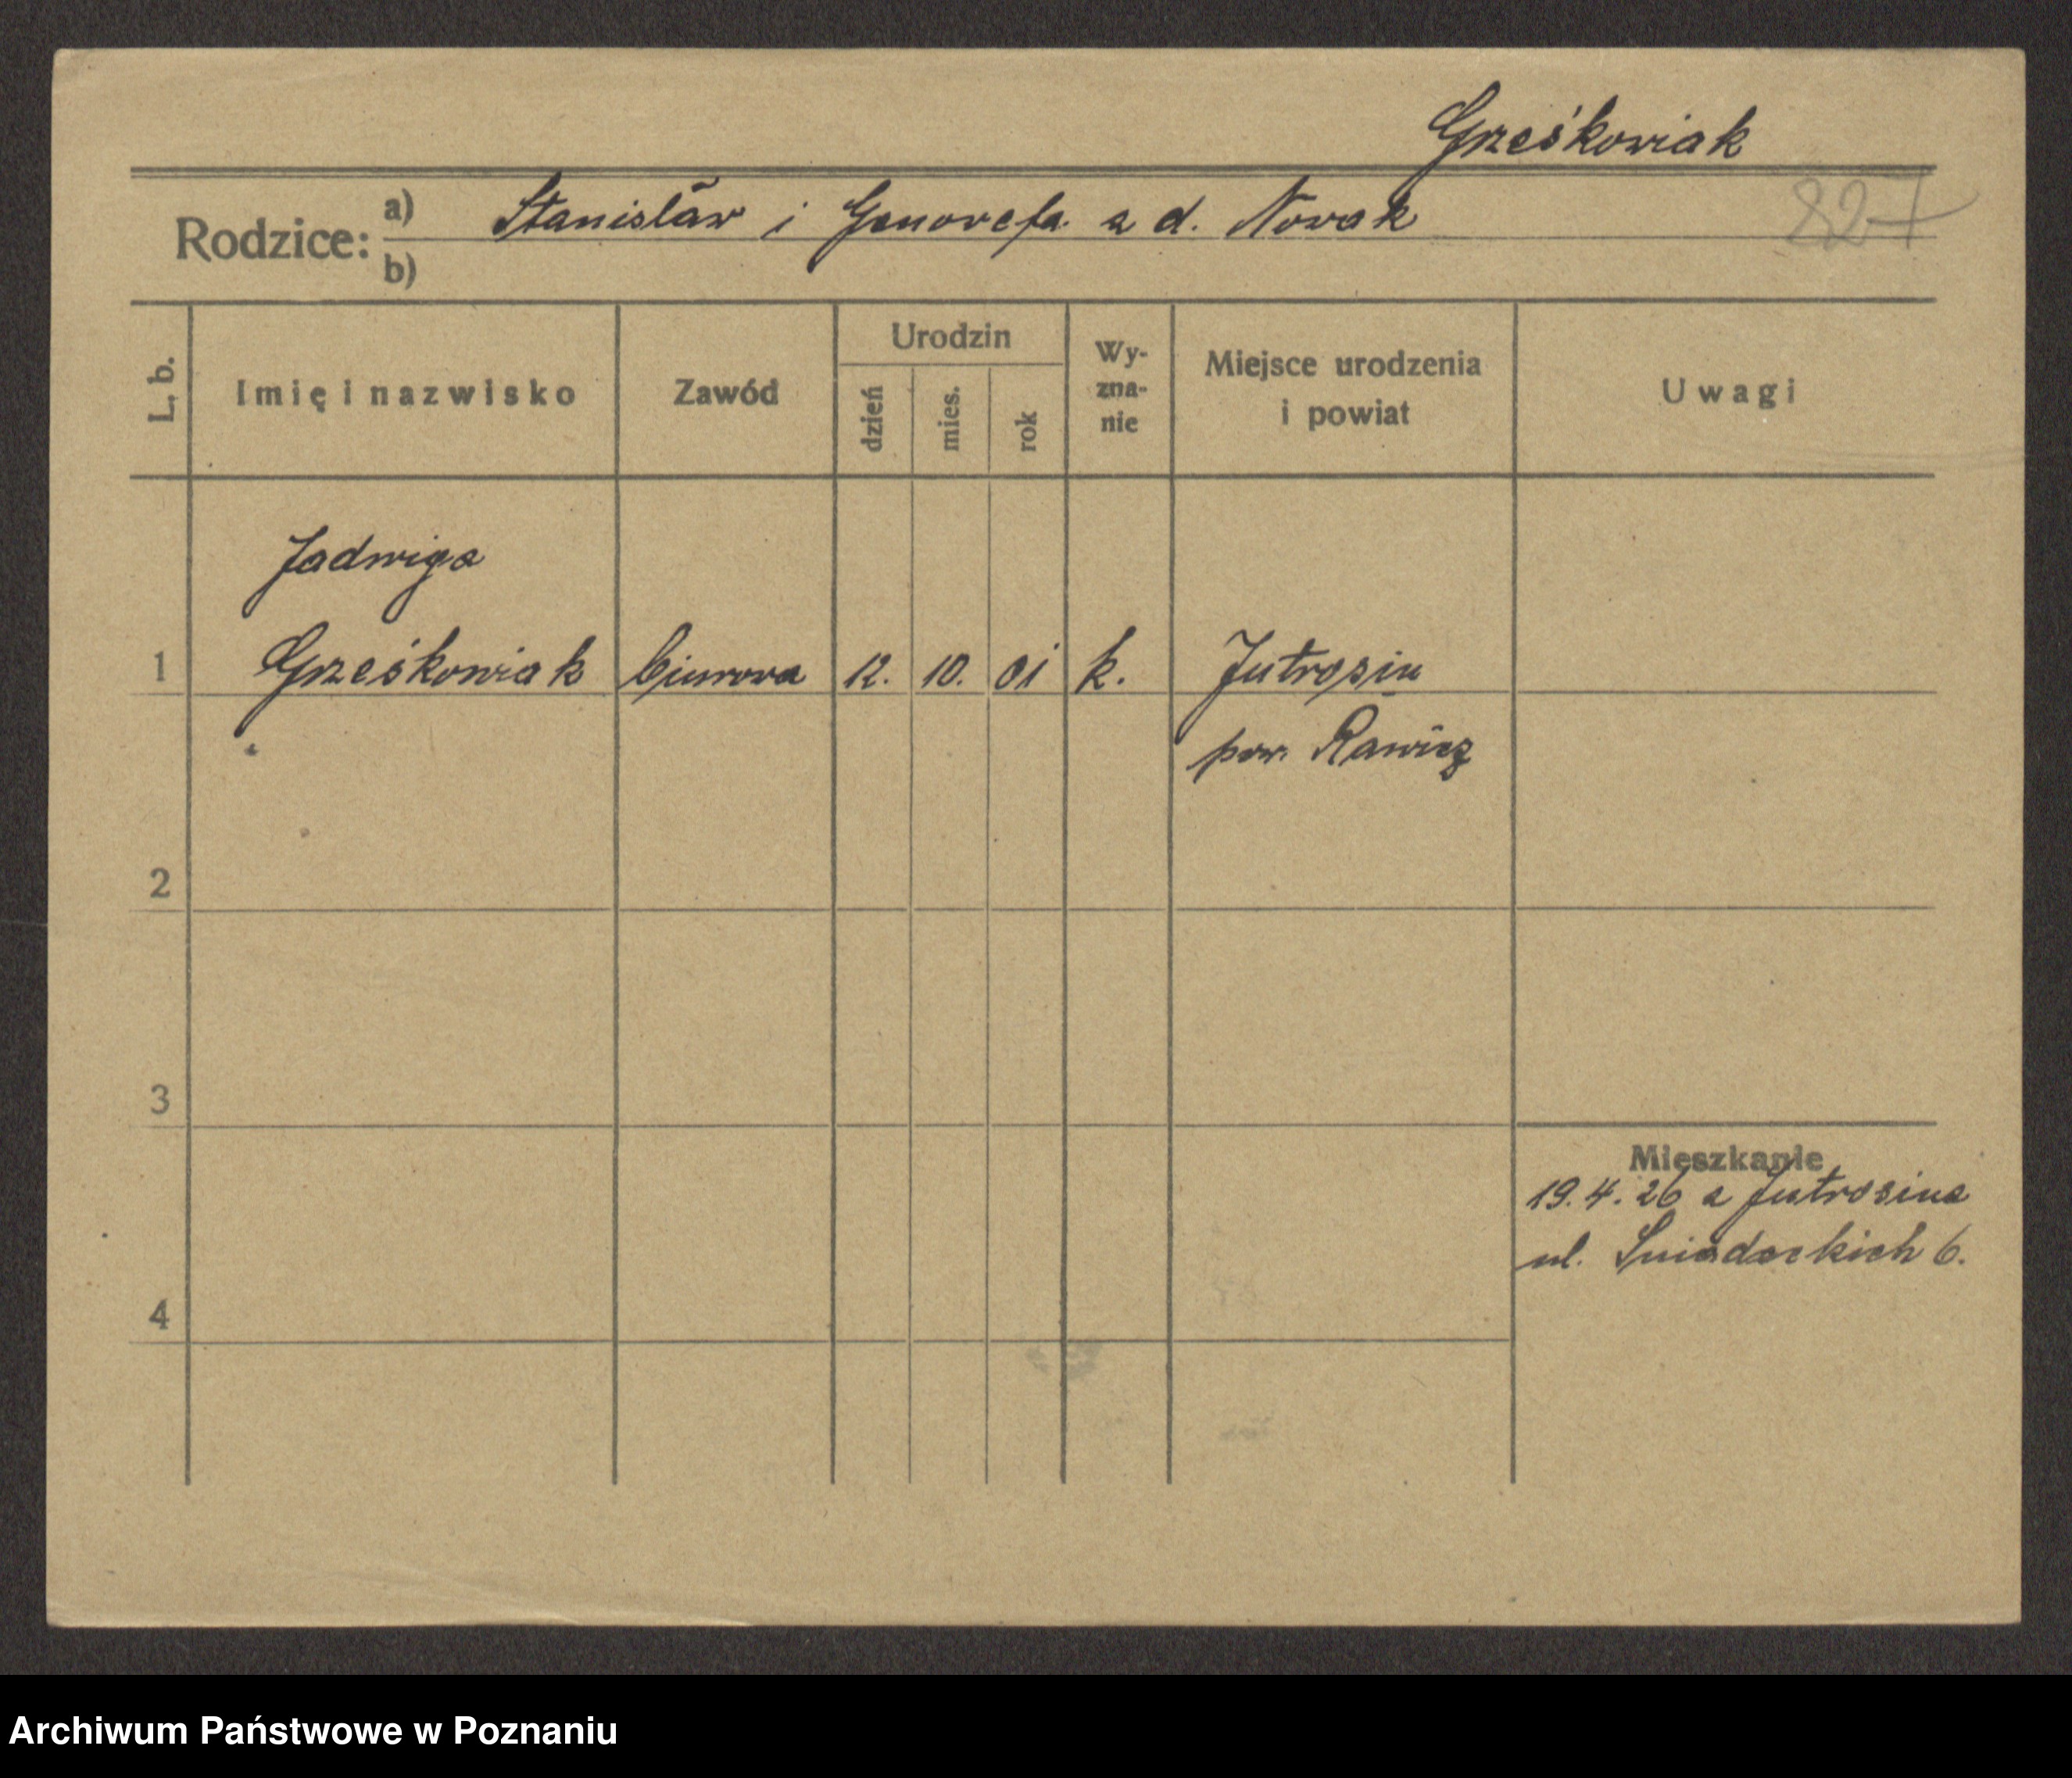 Grześkowiak
Rodzice: a) Stanisław i Genowefa z d. Nowak
b)
827
L. b.
Imię i nazwisko
Zawód
Urodzin
dzień
mies.
rok
Wy-
zna-
nie
Miejsce urodzenia
i powiat
Uwagi
Jadwiga
1 Grześkowiak biurowa 12. 10. 01 k. Jutrosin
pow. Rawicz
2
3
Mieszkanie
19.4.26 z Jutrosina
ul. Sniadeckich 6.
4
Archiwum Państwowe w Poznaniu